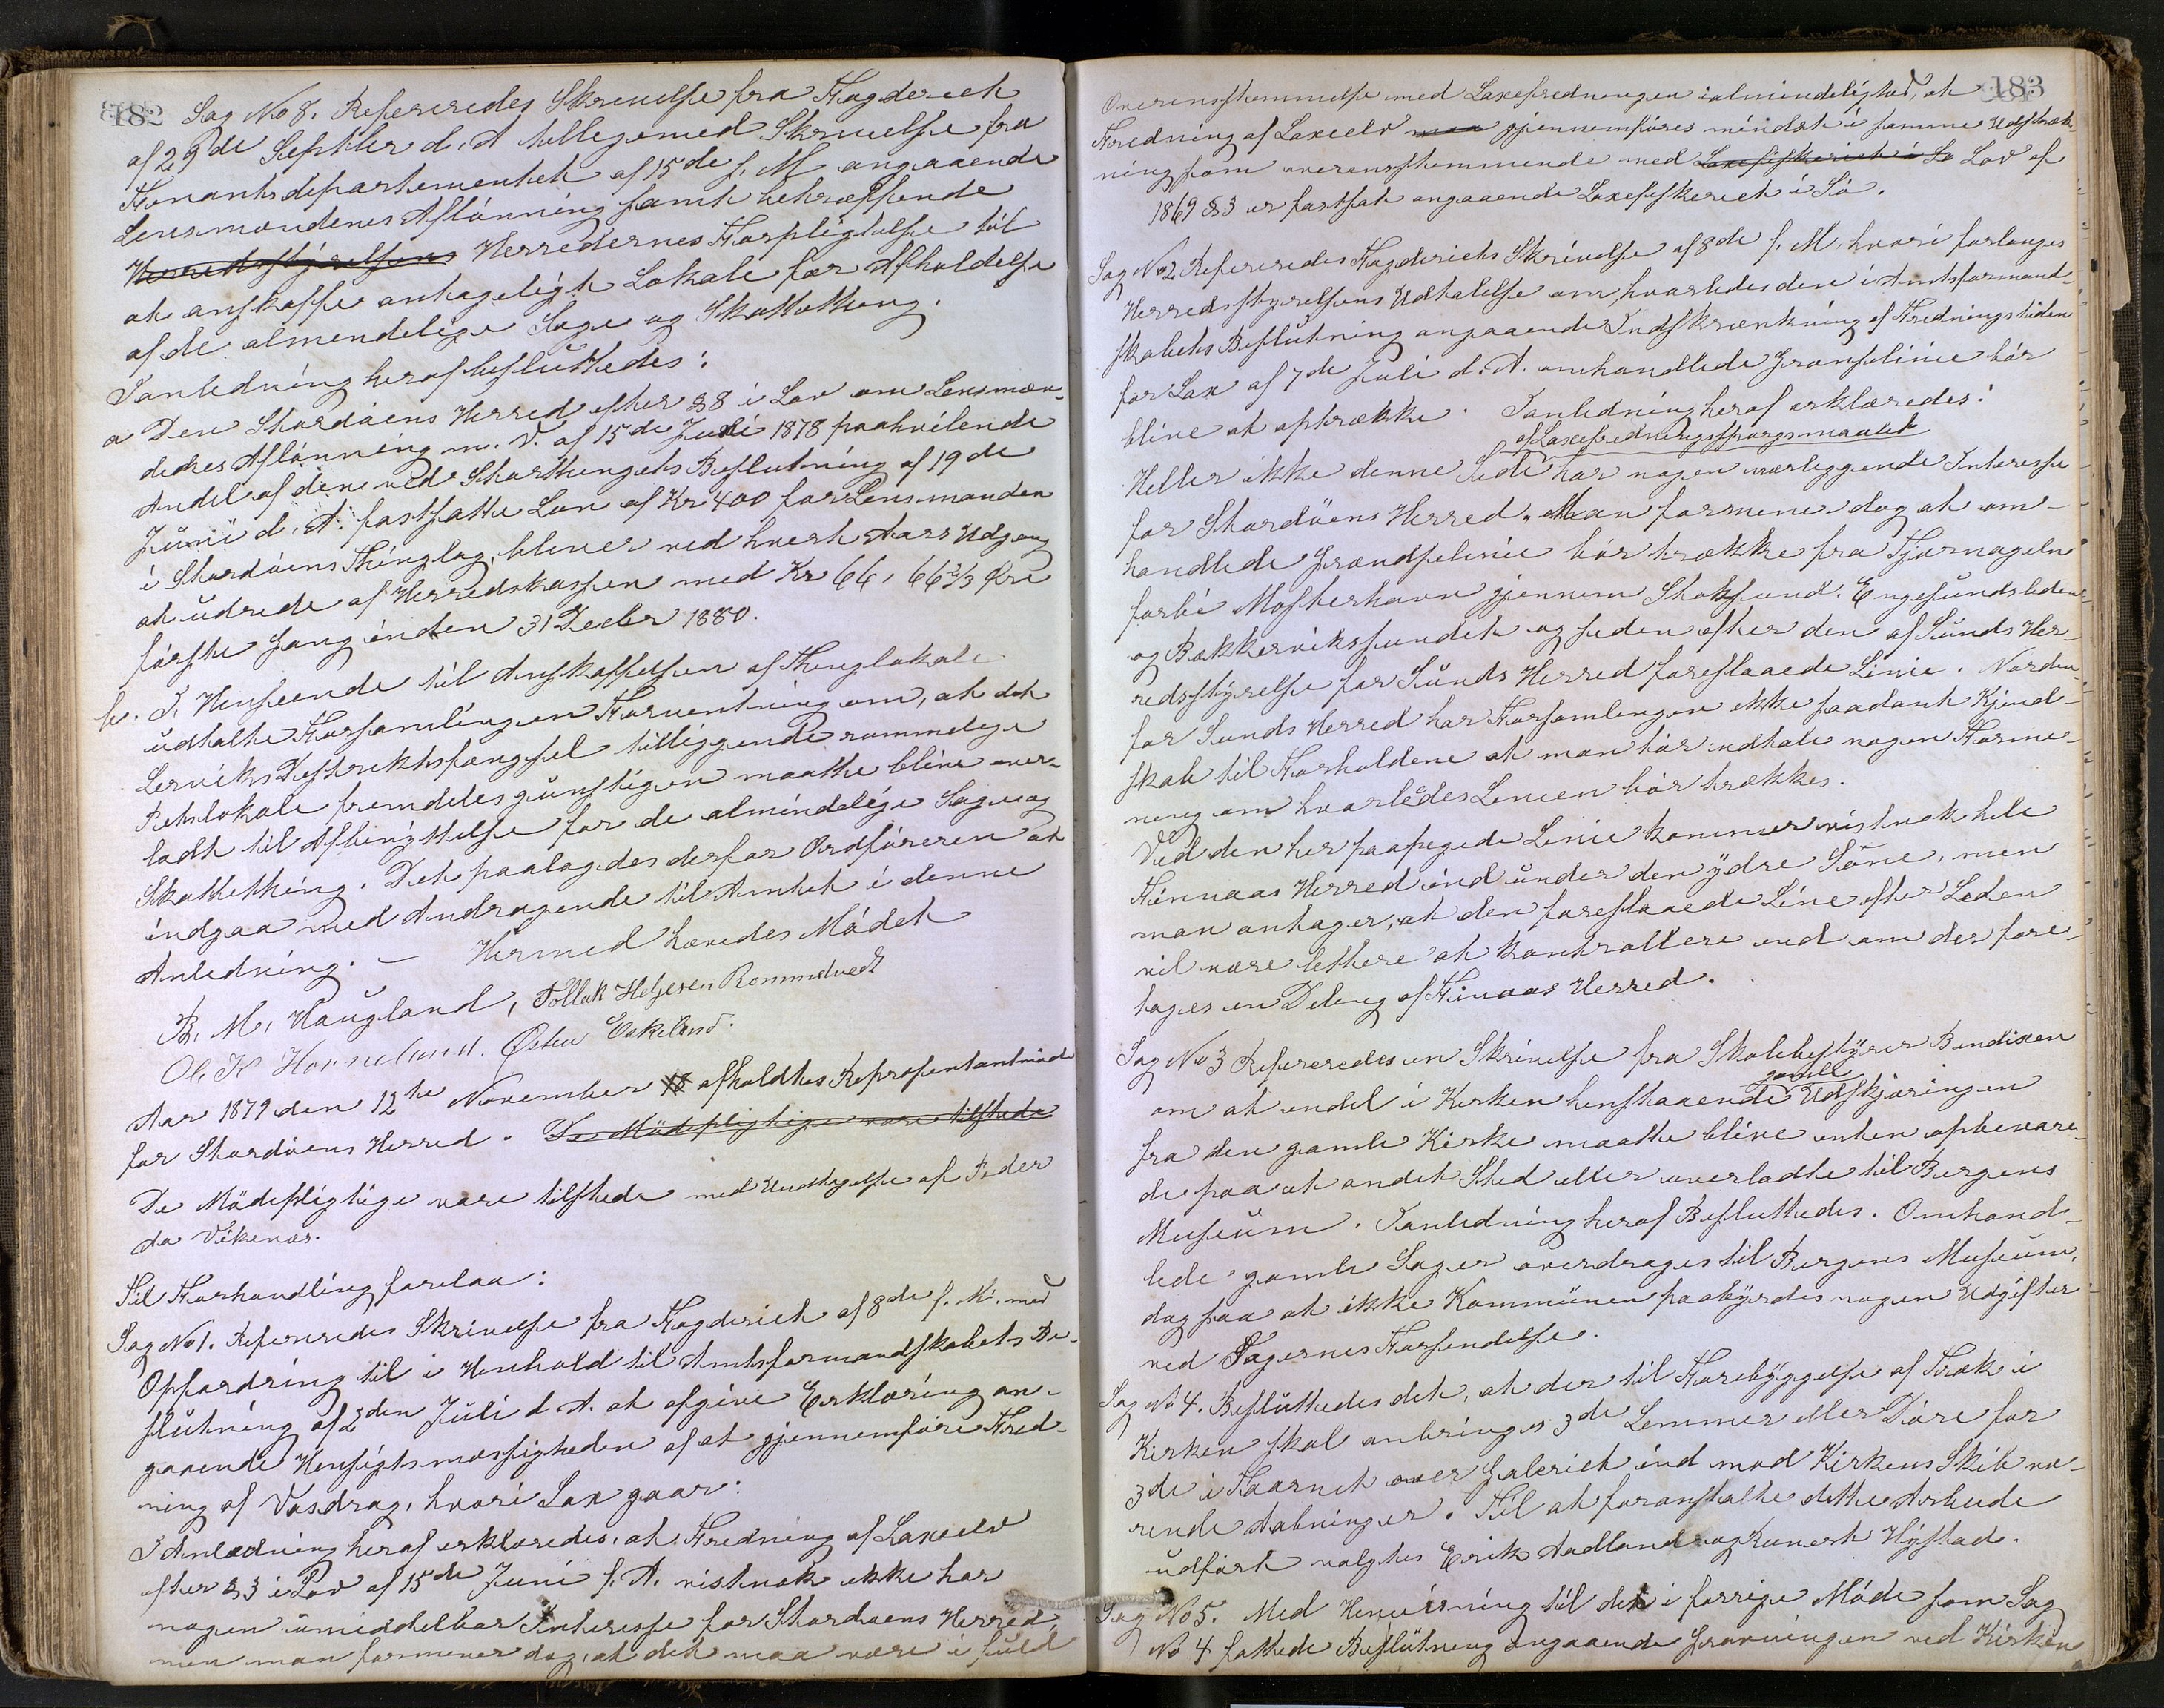 182
Sag No 8. Refereredes Skrivelse fra Fogderiet
af 29de Septbr d. A tilligemed Skrivelse fra
Finantsdepartementet af 15de s. M angaaende
Lensmandenes Aflönning samt betræffende
Herredsstyrelsens Herredernes Forpligtelse til
at anskaffe antageligt Lokale for Afholdelse
af de almindelige Sage og Skatteting.
I anledning heraf besluttedes:
a Den Stordöens Herred efter § 8 i Lov om Lensmæn-
denes Aflönning m. V. af 15de Juni 1878 paahvilende
Andel af den ved Storthingets Beslutning af 19de
Juni d. A. fastsatte Løn af Kr 400 for Lensmanden
i Stordöens Thinglag, bliver ved hvert Aars Udgang
at udrede af Herredskassen med Kr 66, 66 2/3 Øre
förste Gang inden 31 Decbr 1880.
b. I Henseende til Anskaffelsen af Thinglokale
udtalte Forsamlingen Forventning om, at det
Lerviks Distriktsfængsel tilliggende rummelige
Retslokale fremdeles gunstigen maatte blive over-
ladt til Afbenyttelse for de almindelige Sage og
Skattething. Det paalagdes derfor Ordföreren at
indgaa med Andragende til Amtet i denne
Anledning. – Hermed hævedes Mödet
B. M. Haugland, Tollak Helgesen Rommetvedt
Ol. K Horneland. Østen Eskeland.
Aar 1879 den 12te November afholdtes Repræsentantmöde
for Stordöens Herred. De Mödepligtige vare tilstede
De Mödepligtige vare tilstede med Undtagelse af Peder
da Vikenes.
Til Forhandling forelaa:
Sag No 1. Refereredes Skrivelse fra Fogderiet af 8de s. M. med
Opfordring til i Henhold til Amtsformandskabets Be-
slutning af 2den Juli d. A. at afgive Erklæring an-
gaaende Hensigtsmæssigheden af at gjennemföre Fred-
ning af Vasdrag, hvori Lax gaar:
I Anledning heraf erklæredes, at Fredning af Laxeelv
efter § 3 i Lov af 15de Juni f. A. vistnok ikke har
nogen umiddelbar Interesse for Stordöens Herred,
men man formener dog, at det maa være i fuld
183
Overensstemmelse med Laxefredningen i almindelighed, at
Fredning af Laxeelv maa gjennemföres mindst i samme Udstræk-
ning som overensstemmende med Laxefiskeriet i Sö Lov af
1869 § 3 er fastsat angaaende Laxefiskeriet i Sö.
Sag No 2 Refereredes Fogderiets Skrivelse af 8de s. M. hvori forlanges
Herredsstyrelsens Udtalelse om hvorledes den i Amtsformand-
skabets Beslutning angaaende Indskrænkning af Fredningstiden
for Lax af 7de Juli d. A. omhandlede Grænselinie bör
blive at optrække. I anledning heraf erklæredes:
af Laxefredningsspørgsmaalet
Heller ikke denne Side har nogen nærliggende Interesse
for Stordöens Herred. Man formener dog at om-
handlede Grændselinie bör trække fra Fjernageln
forbi Mosterhavn gjennem Stoksund, Engesundsleden
og Bækkerviksundet og siden efter den af Sunds Her-
redsstyrelse for Sunds Herred foreslaaede Linie. Norden-
for Sunds Herred har Forsamlingen ikke saadant Kjend-
skab til Forholdene at man bör udtale nogen Forme-
ning om hvorledes Linien bör trækkes.
Ved den her paapegede Linie kommer vistnok hele
Finnaas Herred ind under den ydre Sone, men
man antager, at den foreslaaede Line efter Leden
vil være lettere at kontrollere end om der fore-
tages en Deling af Finaas Herred.
Sag No 3 Refereredes en Skrivelse fra Skolebestyrer Bendixen
gamle
om at endel i Kirken henstaaende Udskjæringen
fra den gamle Kirke maatte blive enten opbevare-
de paa et andet Sted eller overladte til Bergens
Museum. I anledning heraf Besluttedes. Omhand-
lede gamle Sager overdrages til Bergens Museum,
dog saa at ikke Kommunen paabyrdes nogen Udgifter
ved Sagernes Forsendelse.
Sag No 4. Besluttedes det, at der til Forebyggelse af Træk i
Kirken skal anbringes 3de Lemmer eller Döre for
3de i Taarnet over Galeriet ind mod Kirkens Skib væ-
rende Aabninger. Til at foranstalte dette Arbeide
udfört valgtes Erik Aadland og Konert Hystad.
Sag No 5. Med Henvisning til den i forrige Möde som Sag
No 4 fattede Beslutning angaaende Gravningen ved Kirken